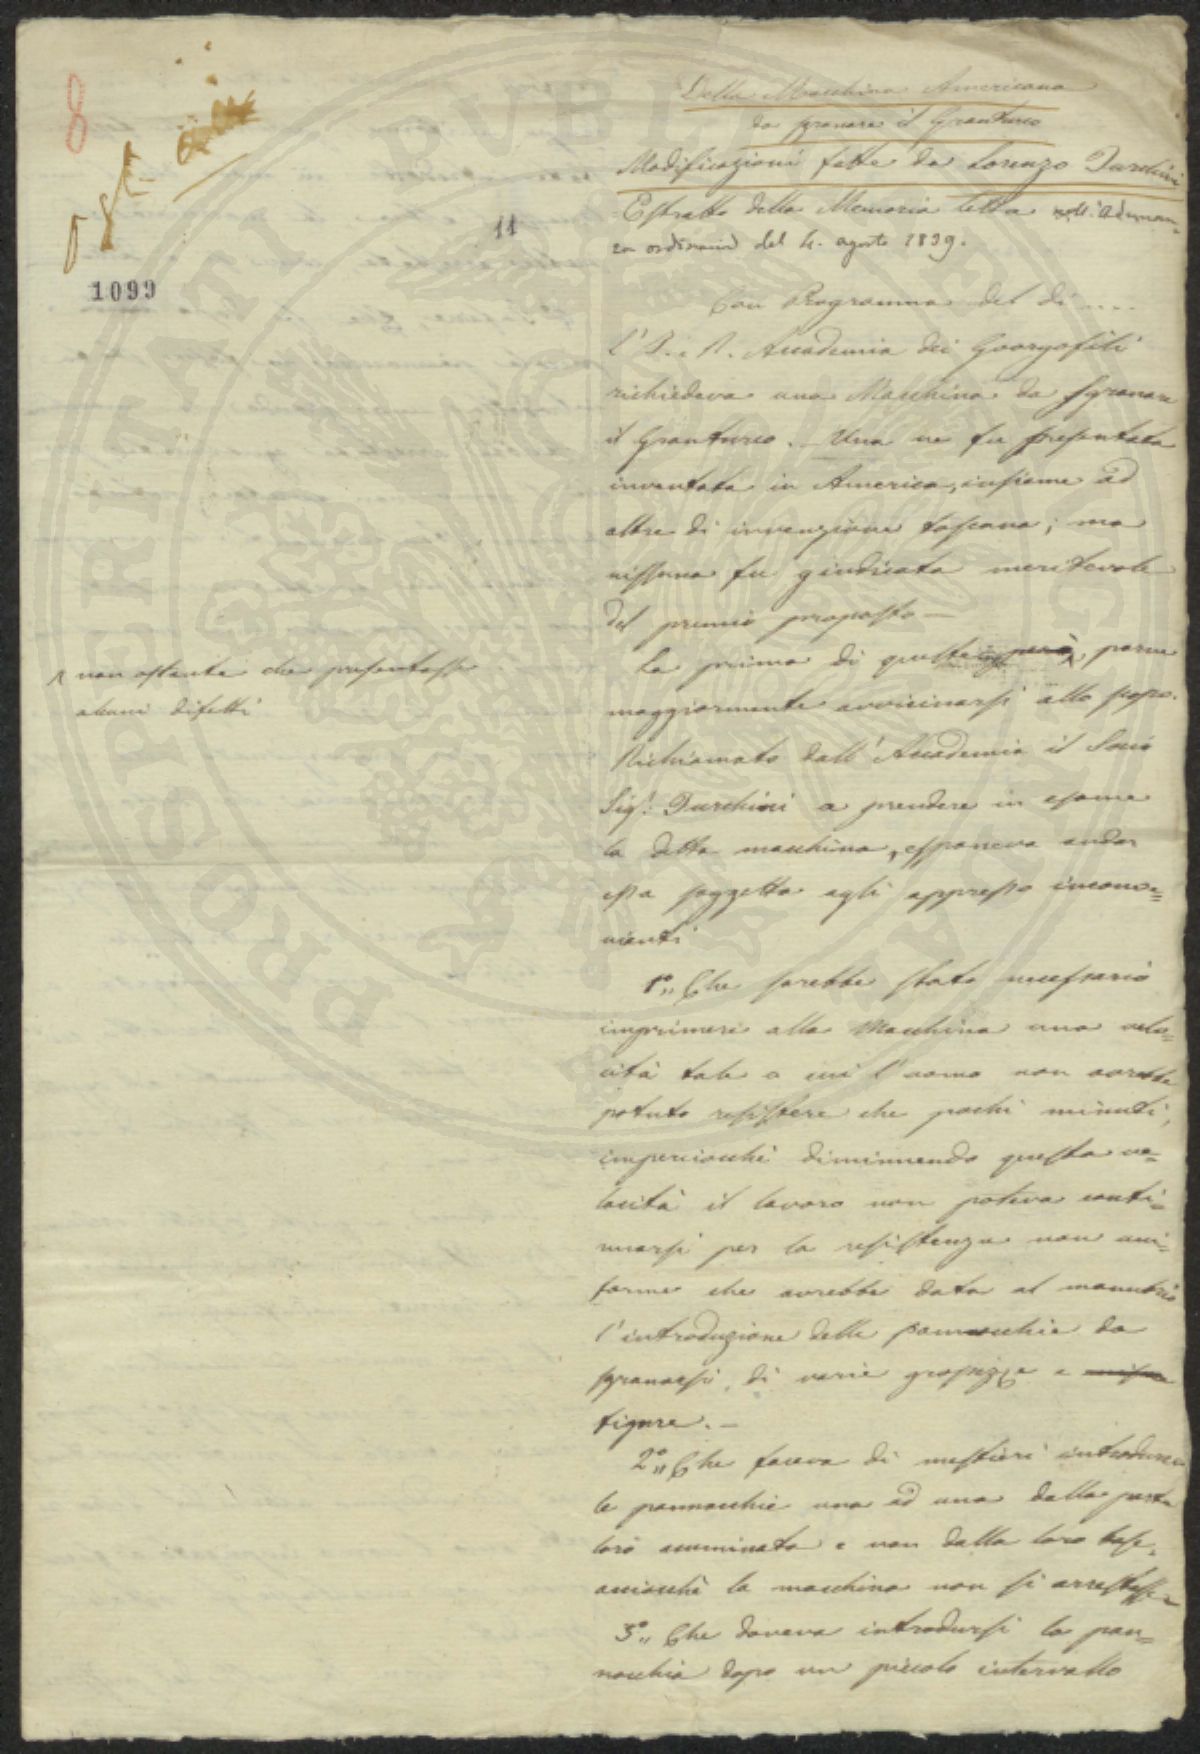 8
11
1099
Della Macchina Americana
da sgranare il Granturco
Modificazioni fatte da Lorenzo Turchini
Estratto della Memoria letta nell'adunan-
za ordinaria del 4. agosto 1839.
Con Programma del di ....
l'I. e R. Accademia dei Georgofili
richiedeva una Macchina da sgranare
il Granturco. Una ne fu presentata
inventata in America, insieme ad
altre di invenzione toscana; ma
nissuna fu giudicata meritevole
del premio proposto —
La prima di queste però ^ parve
^ non ostante che presentasse
alcuni difetti
maggiormente avvicinarsi allo scopo.
Richiamato dall'Accademia il Socio
Sig.r Turchini a prendere in esame
la detta macchina, esponeva andar
essa soggetta agli appresso inconve=
nienti
1.° „ Che sarebbe stato necessario
imprimere alla Macchina una velo=
cità tale a cui l'uomo non avrebbe
potuto resistere che pochi minuti,
imperciocchè diminuendo questa ve=
locità il lavoro non poteva conti=
nuarsi per la resistenza non uni=
forme che avrebbe data al manubrio
l'introduzione delle pannocchie da
sgranarsi, di varie grossezze e
figure. —
2.° „ Che faceva di mestieri introdurre
le pannocchie una ad una dalla parte
loro acuminata e non dalla loro base,
acciocchè la macchina non si arrestasse
3.° „ Che doveva introdursi la pan=
nocchia dopo un piccolo intervallo
PROSPERITATI PVBLICAE